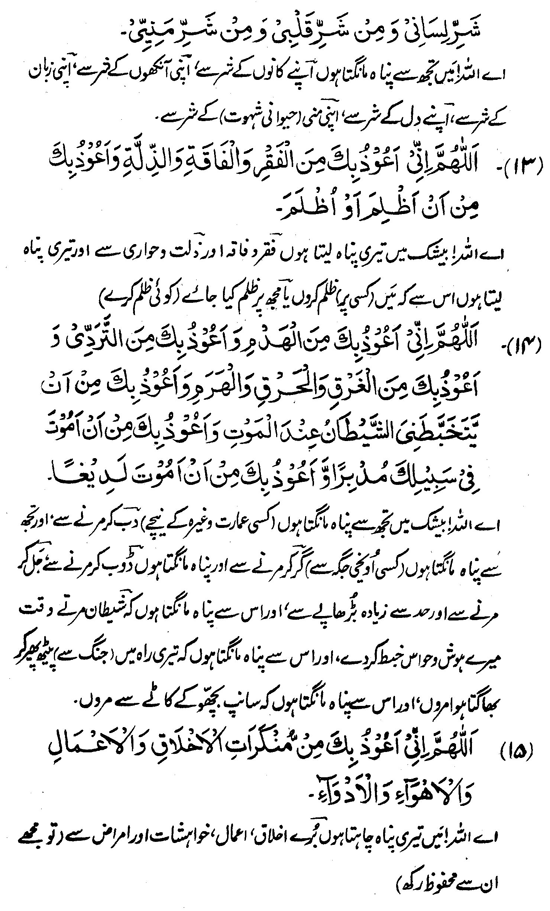 شَرِّ لِسَانِیْ وَ مِنْ شَرِّ قَلْبِیْ وَ مِنْ شَرِّ مَنِیِّیْ۔
اے اللہ! میں تجھ سے پناہ مانگتا ہوں اپنے کانوں کے شر سے، اپنی آنکھوں کے شر سے، اپنی زبان
کے شر سے، اپنے دل کے شر سے، اپنی منی (حیوانی شہوت) کے شر سے۔
(۱۳)۔ اَللّٰهُمَّ اِنِّیْ اَعُوْذُ بِكَ مِنَ الْفَقْرِ وَالْفَاقَةِ وَالذِّلَّةِ وَاَعُوْذُ بِكَ
مِنْ اَنْ اَظْلِمَ اَوْ اُظْلَمَ۔
اے اللہ! بیشک میں تیری پناہ لیتا ہوں فقر و فاقہ اور ذلت و حواری سے اور تیری پناہ
لیتا ہوں اس سے کہ میں (کسی پر) ظلم کروں یا مجھ پر ظلم کیا جائے (کوئی ظلم کرے)
(۱۴)۔ اَللّٰهُمَّ اِنِّیْ اَعُوْذُ بِكَ مِنَ الْهَدْمِ وَ اَعُوْذُ بِكَ مِنَ التَّرَدِّیْ وَ
اَعُوْذُ بِكَ مِنَ الْغَرَقِ وَالْحَرَقِ وَالْهَرَمِ وَاَعُوْذُ بِكَ مِنْ اَنْ
یَّتَخَبَّطَنِیَ الشَّیْطَانُ عِنْدَ الْمَوْتِ وَاَعُوْذُ بِكَ مِنْ اَنْ اَمُوْتَ
فِیْ سَبِیْلِكَ مُدْبِرًا وَّ اَعُوْذُ بِكَ مِنْ اَنْ اَمُوْتَ لَدِیْغًا۔
اے اللہ! بیشک میں تجھ سے پناہ مانگتا ہوں (کسی عمارت وغیرہ کے نیچے) دب کر مرنے سے، اور تجھ
سے پناہ مانگتا ہوں (کسی اونچی جگہ سے) گر کر مرنے سے اور پناہ مانگتا ہوں ڈوب کر مرنے سے، جل کر
مرنے سے اور حد سے زیادہ بڑھاپے سے، اور اس سے پناہ مانگتا ہوں کہ شیطان مرتے وقت
میرے ہوش و حواس خبط کر دے، اور اس سے پناہ مانگتا ہوں کہ تیری راہ میں (جنگ سے) پیٹھ پھیر کر
بھاگتا ہوا مروں، اور اس سے پناہ مانگتا ہوں کہ سانپ بچھو کے کاٹے سے مروں۔
(۱۵) اَللّٰهُمَّ اِنِّیْ اَعُوْذُ بِكَ مِنْ مُّنْكَرَاتِ الْاَخْلَاقِ وَالْاَعْمَالِ
وَالْاَهْوَآءِ وَالْاَدْوَآءِ۔
اے اللہ! میں تیری پناہ چاہتا ہوں بُرے اخلاق، اعمال، خواہشات اور امراض سے (تو مجھے
ان سے محفوظ رکھ)